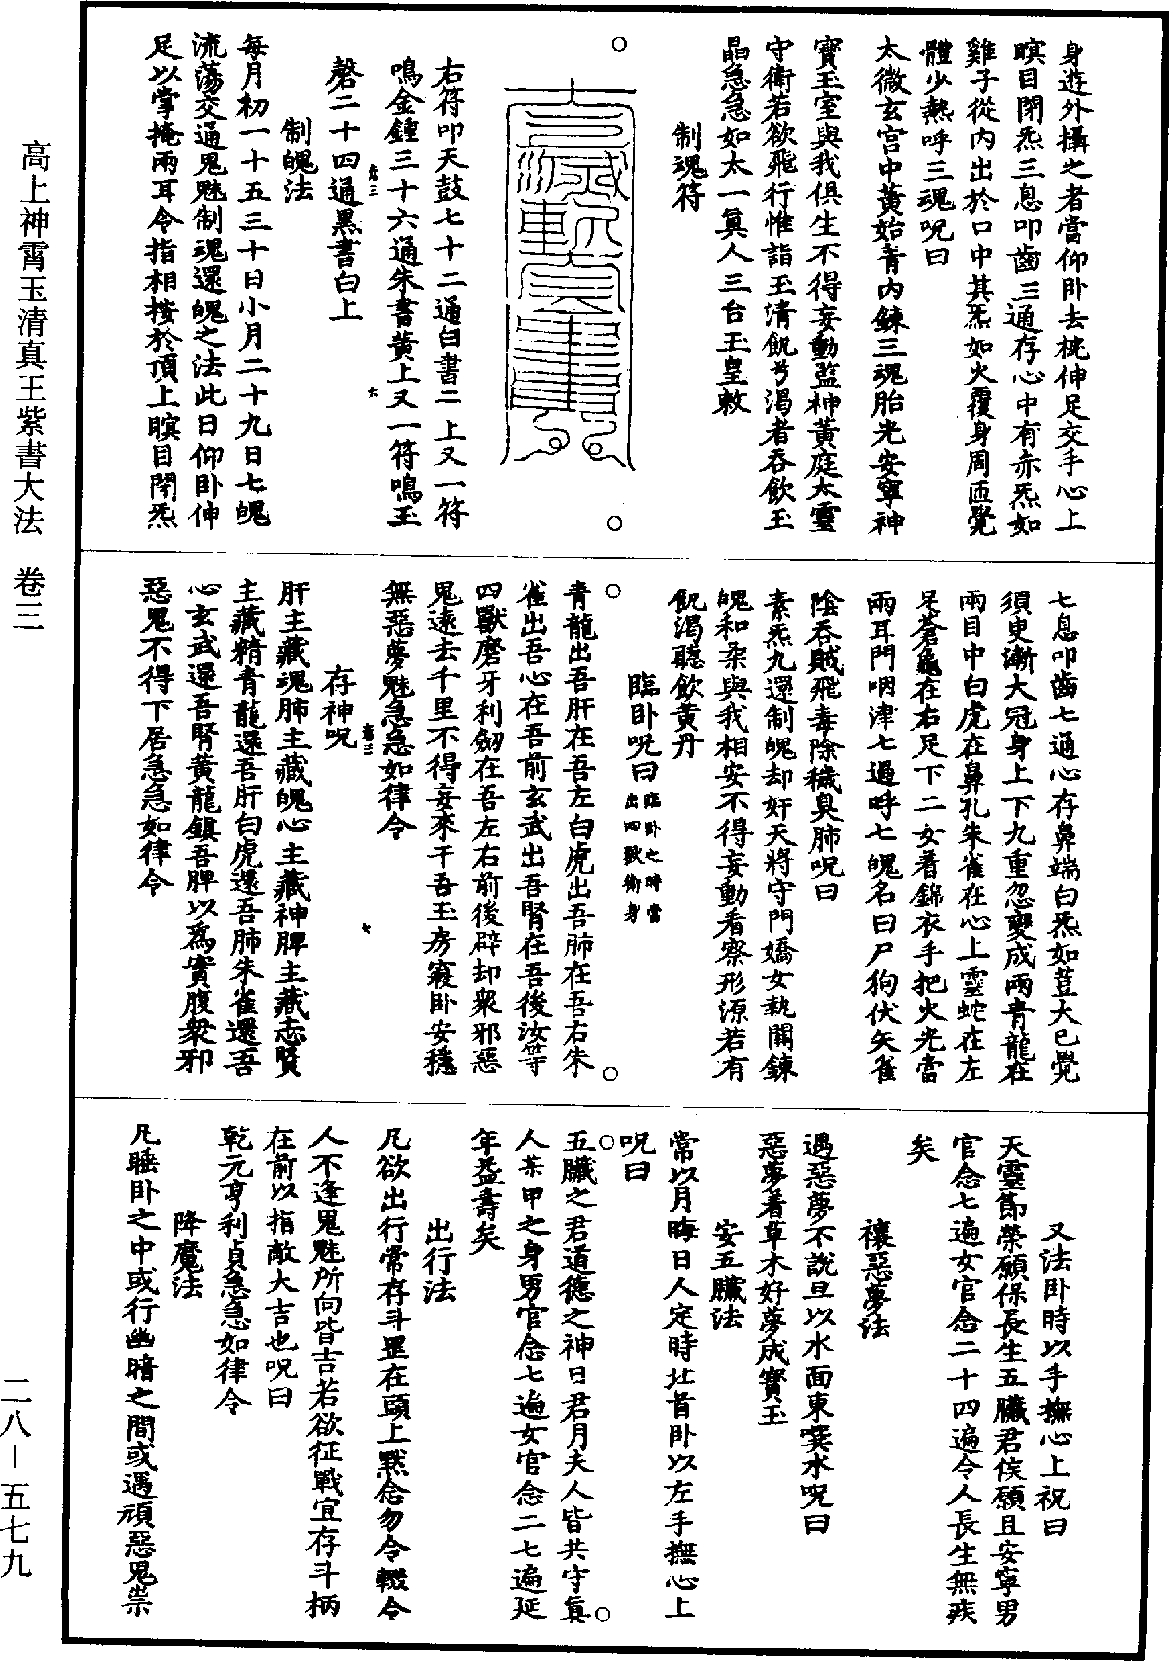 身遊外攝之者當仰卧去枕伸足交手心上
瞑目閉炁三息叩齒三通存心中有赤炁如
雞子從內出於口中其炁如火覆身周匝覺
體少熱呼三魂呪曰
太微玄宮中黃始青內鍊三魂胎光安寧神
寶玉室與我俱生不得妄動監神黃庭太靈
守衛若欲飛行惟詣玉清飢兮渴者吞飲玉
晶急急如太一真人三台玉皇敕
制魂符
右符叩天鼓七十二通白書二上又一符
鳴金鍾三十六通朱書黃上又一符鳴玉
磬二十四通黑書白上
卷三
六
制魄法
每月初一十五三十日小月二十九日七魄
流蕩交通鬼魅制魂還魄之法此日仰卧伸
足以掌掩兩耳令指相接於頂上瞑目閉炁
七息叩齒七通心存鼻端白炁如荳大已覺
須臾漸大冠身上下九重忽變成兩青龍在
兩目中白虎在鼻孔朱雀在心上靈蛇在左
足蒼龜在右足下二女着錦衣手把火光當
兩耳門咽津七過呼七魄名曰尸狗伏矢雀
陰吞賊飛毒除穢臭肺呪曰
素炁九還制魄却奸天將守門嬌女執關鍊
魄和柔與我相安不得妄動看察形源若有
飢渴聽飲黃丹
臨卧呪曰臨卧之時當出四獸衛身
青龍出吾肝在吾左白虎出吾肺在吾右朱
雀出吾心在吾前玄武出吾腎在吾後汝等
四獸磨牙利劒在吾左右前後辟却衆邪惡
鬼遠去千里不得妄來干吾玉房寢卧安穩
無惡夢魅急急如律令
卷三
七
存神呪
肝主藏魂肺主藏魄心主藏神脾主藏志腎
主藏精青龍還吾肝白虎還吾肺朱雀還吾
心玄武還吾腎黃龍鎮吾脾以爲實腹衆邪
惡鬼不得下居急急如律令
又法卧時以手撫心上祝曰
天靈節榮願保長生五臟君侯願且安寧男
官念七遍女官念二十四遍令人長生無疾
矣
禳惡夢法
遇惡夢不說旦以水面東噀水呪曰
惡夢着草木好夢成寶玉
安五臟法
常以月晦日人定時北首卧以左手撫心上
呪曰
五臟之君道德之神日君月夫人皆共守真
人某甲之身男官念七遍女官念二七遍延
年益壽矣
出行法
凡欲出行常存斗罡在頭上默念勿令輟令
人不逢鬼魅所向皆吉若欲征戰宜存斗柄
在前以指敵大吉也呪曰
乾元亨利貞急急如律令
降魔法
凡睡卧之中或行幽暗之間或遇頑惡鬼祟
高上神霄玉清真王紫書大法 卷三
二八－五七九